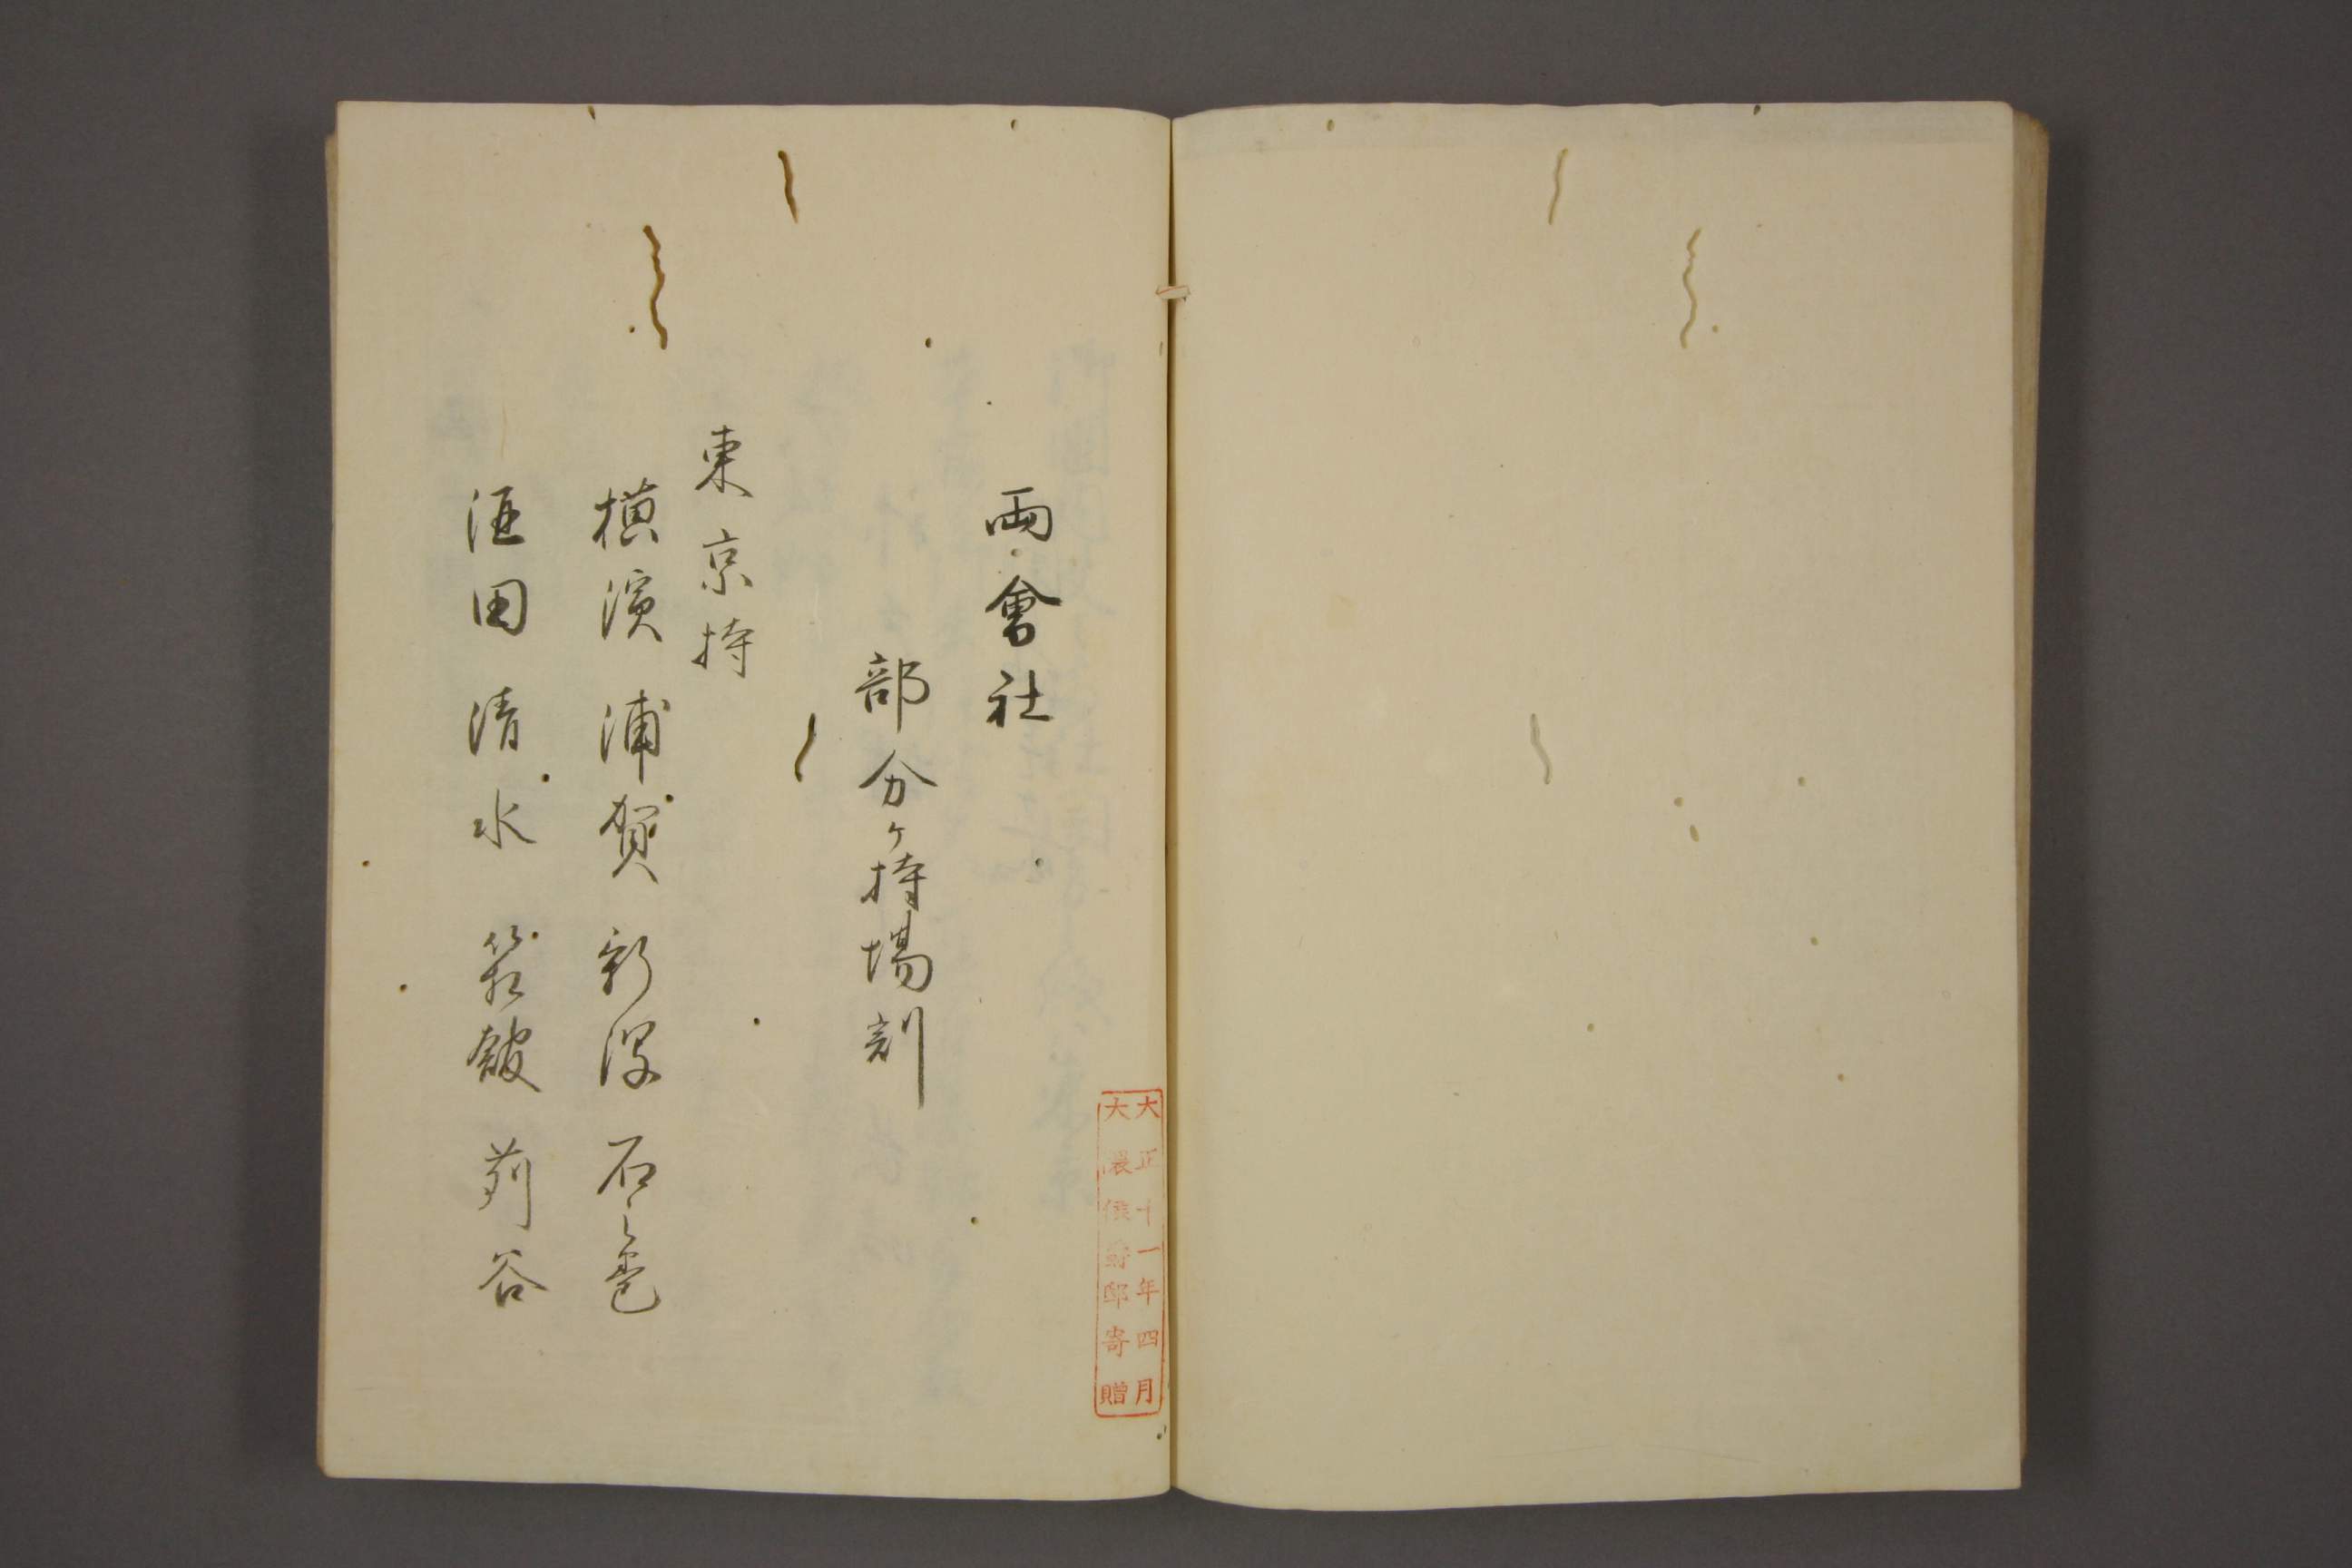 兩會社
部分ヶ持場割
東京持
横濱 浦賀 新沢 石之巻
酒田 清水 箱館 苅谷
大正十一年四月
大隈侯爵邸寄贈